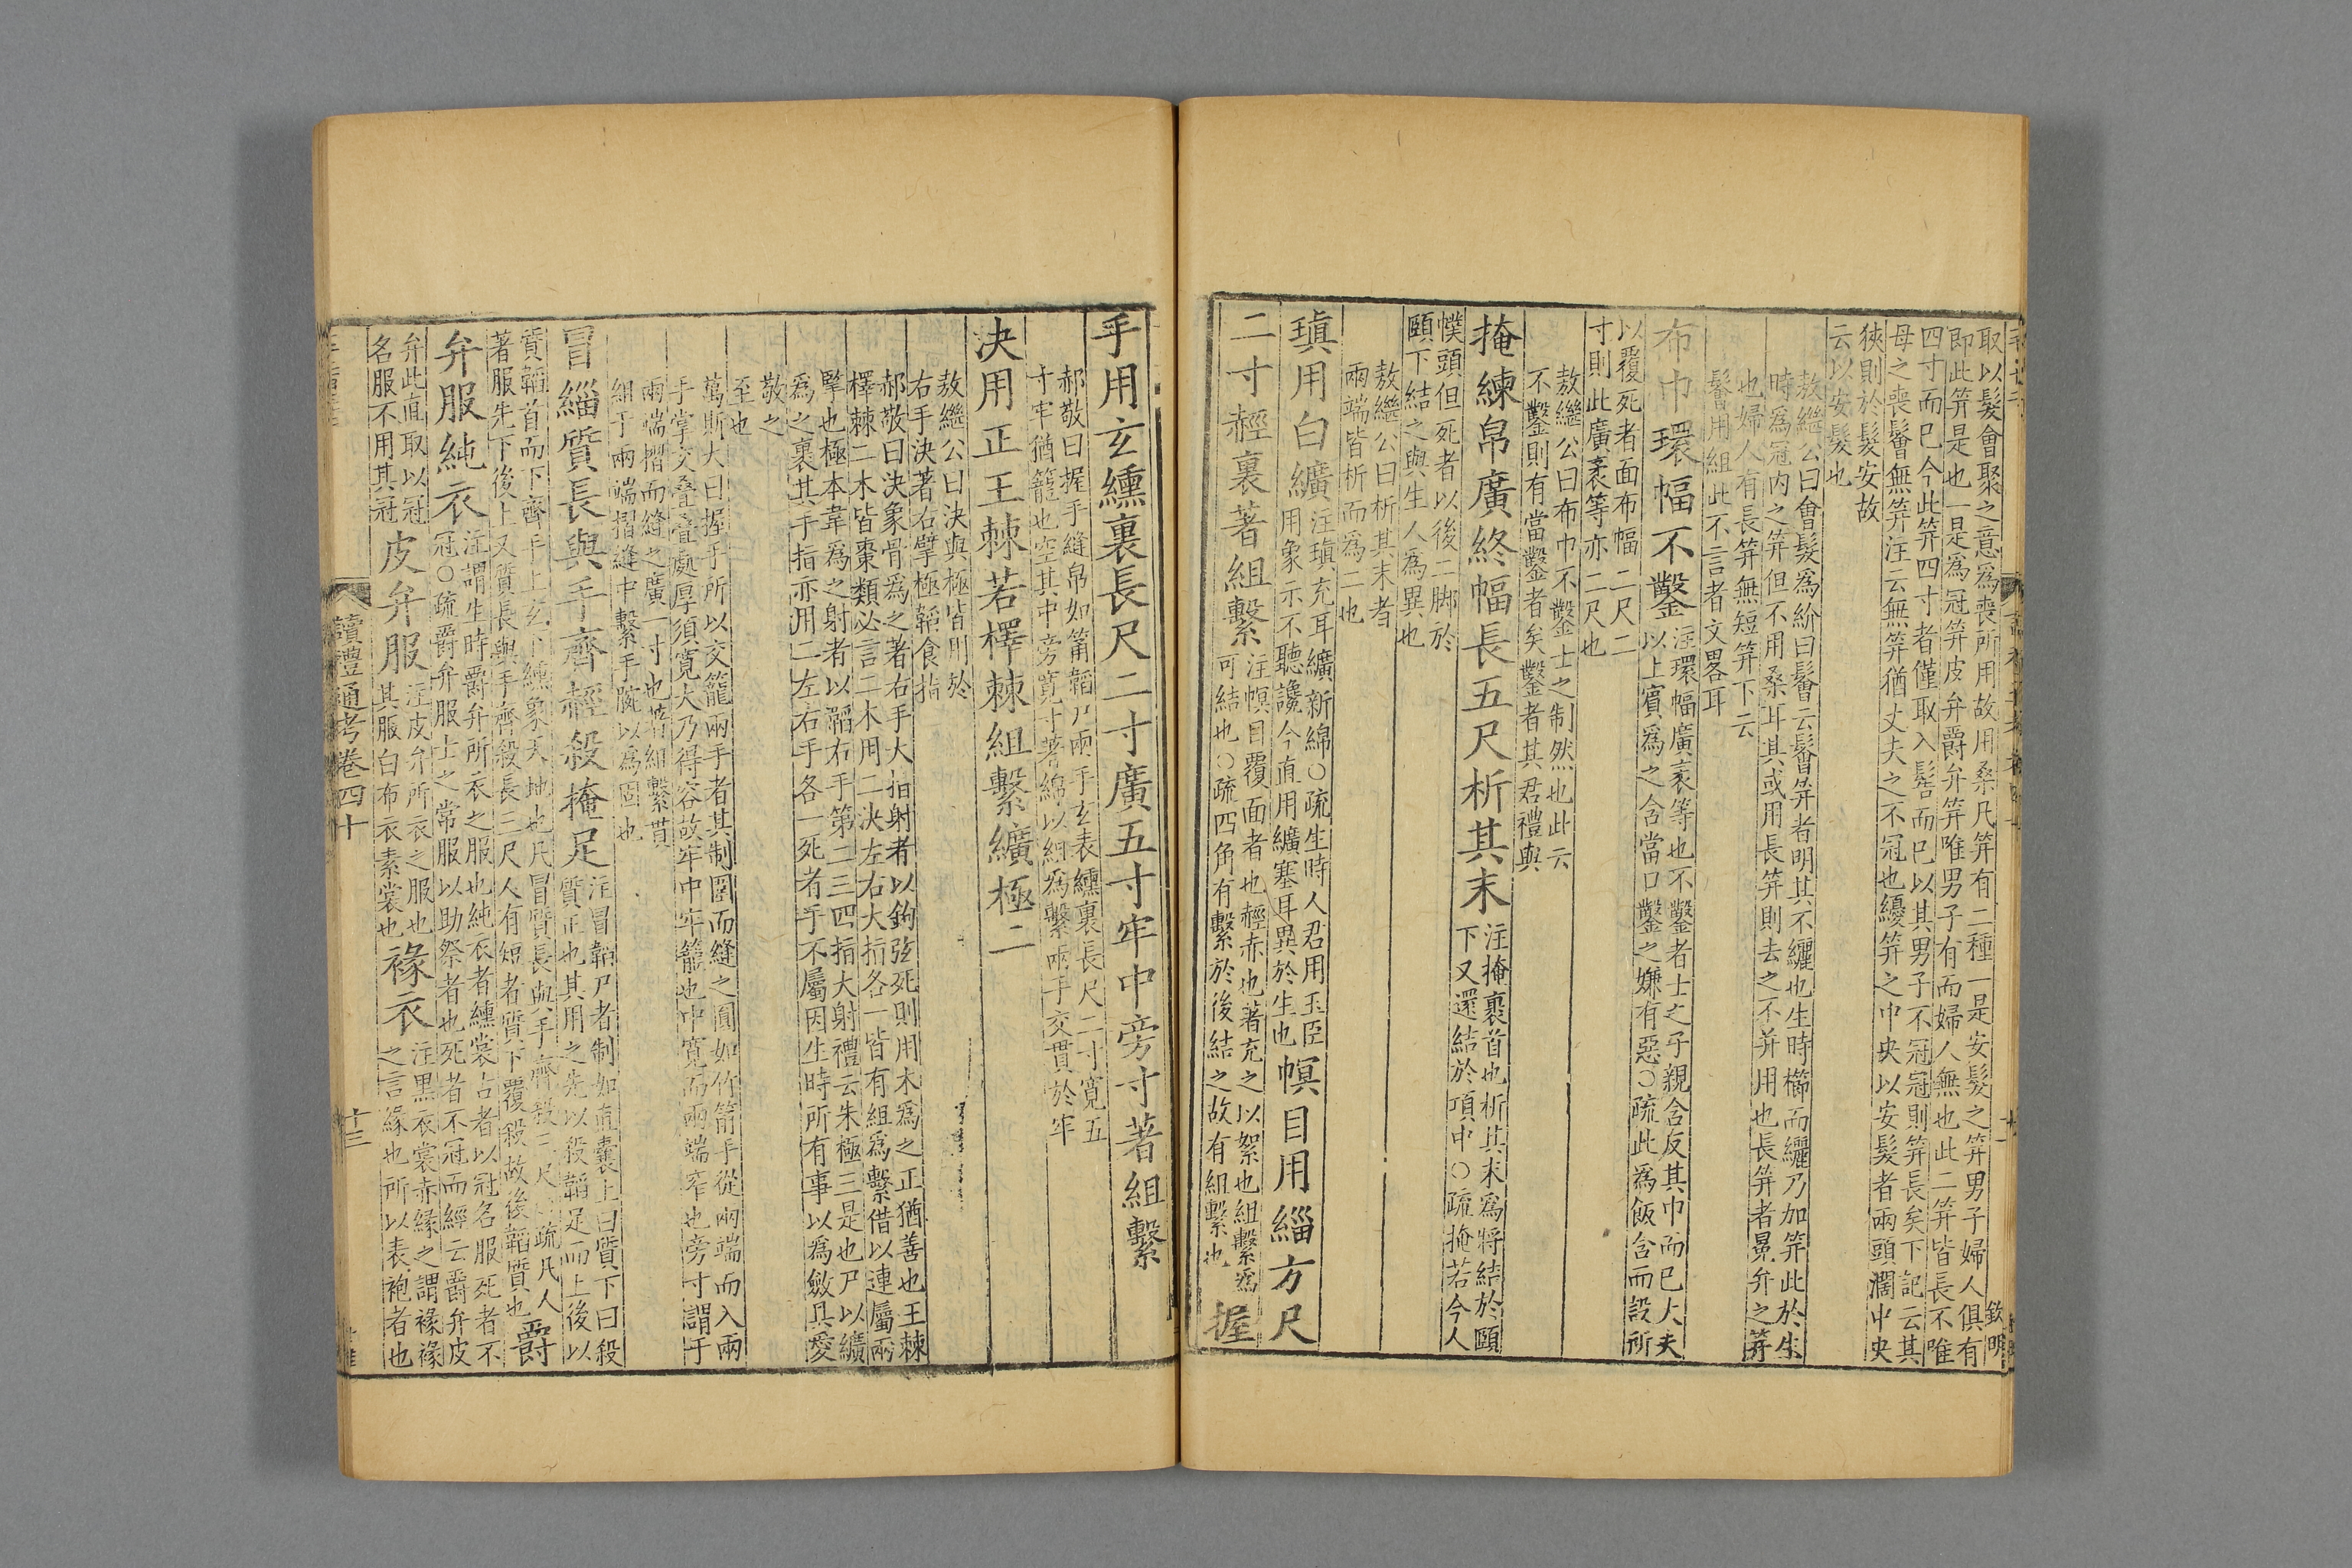 取以髮會聚之意爲喪所用故用桑凡笄有二種一是安髮之笄男子婦人俱有
即此笄是也一是爲冠笄皮弁爵弁笄唯男子有而婦人無也此二笄皆長不唯
四寸而已今此笄四寸者僅取入髻而已以其男子不冠冠則笄長矣下記云其
母之喪鬠無笄注云無笄猶丈夫之不冠也纋笄之中央以安髮者兩頭濶中央
狹則於髮安故
云以安髮也
敖繼公曰會髮爲紒曰鬠云鬠笄者明其不纚也生時櫛而纚乃加笄此於生
時爲冠内之笄但不用桑耳其或用長笄則去之不并用也長笄者冕弁之笄
也婦人有長笄無短笄下云
鬠用組此不言者文畧耳
布巾環幅不鑿注環幅廣袤等也不鑿者士之子親含反其巾而已大夫
以上賓爲之含當口鑿之嫌有惡○疏此爲飯含而設所
以覆死者面布幅二尺二
寸則此廣袤等亦二尺也
敖繼公曰布巾不鑿士之制然也此云
不鑿則有當鑿者矣鑿者其君禮與
掩練帛廣終幅長五尺析其末注掩裹首也析其末爲將結於頤
下又還結於項中○疏掩若今人
幞頭但死者以後二脚於
頤下結之與生人爲異也
敖繼公曰析其末者
兩端皆析而爲二也
瑱用白纊注瑱充耳纊新綿○疏生時人君用玉臣
用象示不聽讒今直用纊塞耳異於生也幎目用緇方尺
二寸䞓裏著組繫注幎目覆面者也䞓赤也著充之以絮也組繫爲
可結也○疏四角有繫於後結之故有組繫也握
手用玄纁裏長尺二寸廣五寸牢中旁寸著組繫
郝敬曰握手縫帛如筩韜尸兩手玄表纁裏長尺二寸寬五
寸牢猶籠也空其中旁寬寸著綿以組爲繫兩手交貫於牢
決用正王棘若檡棘組繫纊極二
敖繼公曰決與極皆用於
右手決著右擘極韜食指
郝敬曰決象骨爲之著右手大指射者以鉤弦死則用木爲之正猶善也王棘
檡棘二木皆棗類必言二木用二決左右大指各一皆有組爲繫借以連屬兩
擥也極本韋爲之射者以韜右手第二三四指大射禮云朱極三是也尸以纊
爲之裹其手指亦用二左右手各一死者手不屬因生時所有事以爲斂具愛
敬之
至也
萬斯大曰握手所以交籠兩手者其制圏而縫之圓如竹筩手從兩端而入兩
手掌交叠叠處厚須寬大乃得容故牢中牢籠也中寛而兩端窄也旁寸謂于
兩端摺而縫之廣一寸也著組繫貫
組于兩端摺縫中繫手腕以爲固也
冒緇質長與手齊䞓殺掩足注冒韜尸者制如直囊上曰質下曰殺
質正也其用之先以殺韜足而上後以
質韜首而下齊手上玄下纁象天地也凡冒質長與手齊殺三尺○疏凡人
著服先下後上又質長與手齊殺長三尺人有短者質下覆殺故後韜質也爵
弁服純衣注謂生時爵弁所衣之服也純衣者纁裳古者以冠名服死者不
冠○疏爵弁服士之常服以助祭者也死者不冠而經云爵弁皮
弁此直取以冠
名服不用其冠皮弁服注皮弁所衣之服也
其服白布衣素裳也褖衣注黑衣裳赤緣之謂褖褖
之言緣也所以表袍者也
讀禮通考卷四十
十三